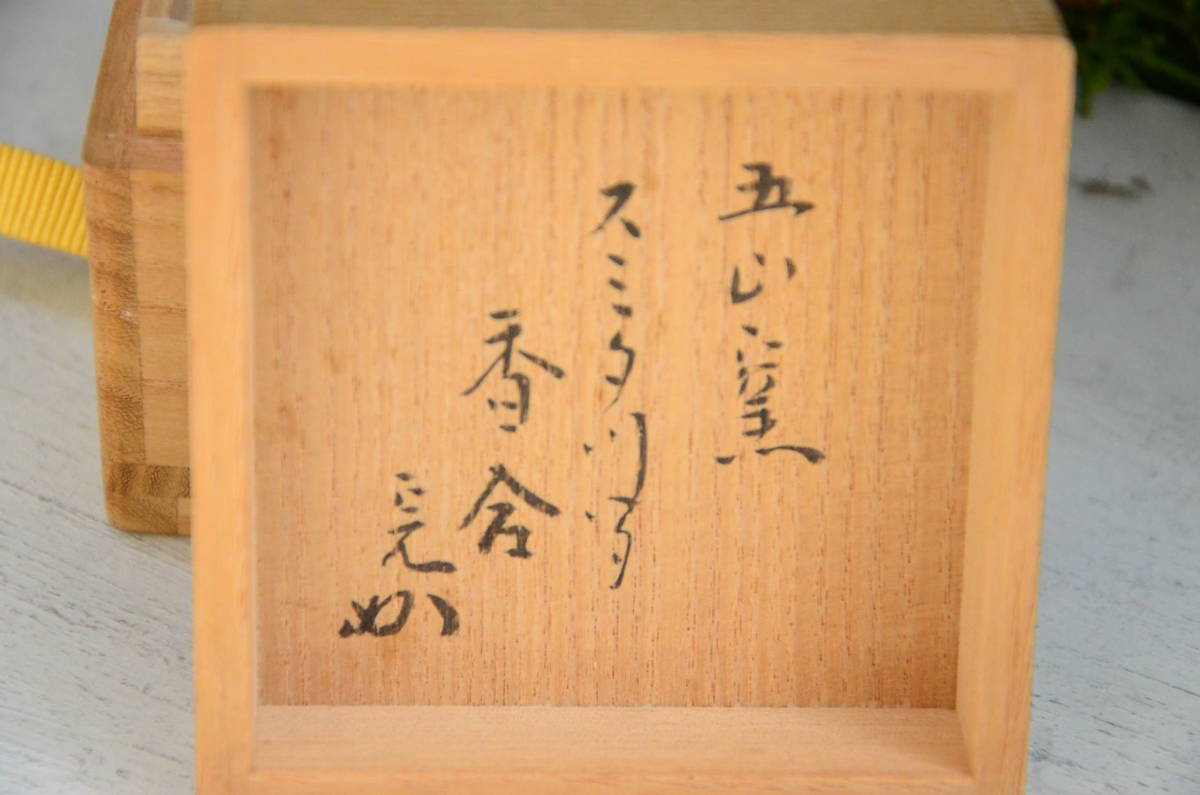 五山窯
スミタ川写
香合